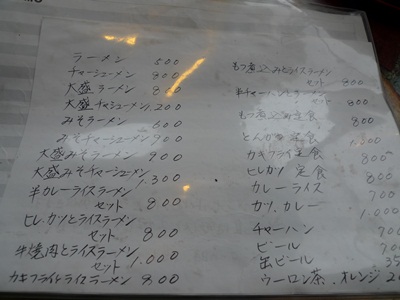 ラーメン 500
チャーシューメン 800
大盛ラーメン 800
大盛チャーシューメン 1,200
みそラーメン 600
みそチャーシューメン 900
大盛みそラーメン 900
大盛みそチャーシューメン 1,300
半カレーライスラーメン
セット 800
ヒレカツとライスラーメン
セット 800
牛焼肉とライスラーメン
セット 1,000
カキフライライスラーメン 800
もつ煮込みとライスラーメン
セット 800
半チャーハンとラーメン
セット 800
もつ煮込み定食 800
とんかつ定食
カキフライ定食 800
ヒレカツ定食 800
カレーライス 700
カツカレー 1,000
チャーハン 700
ビール
缶ビール
ウーロン茶、オレンジ